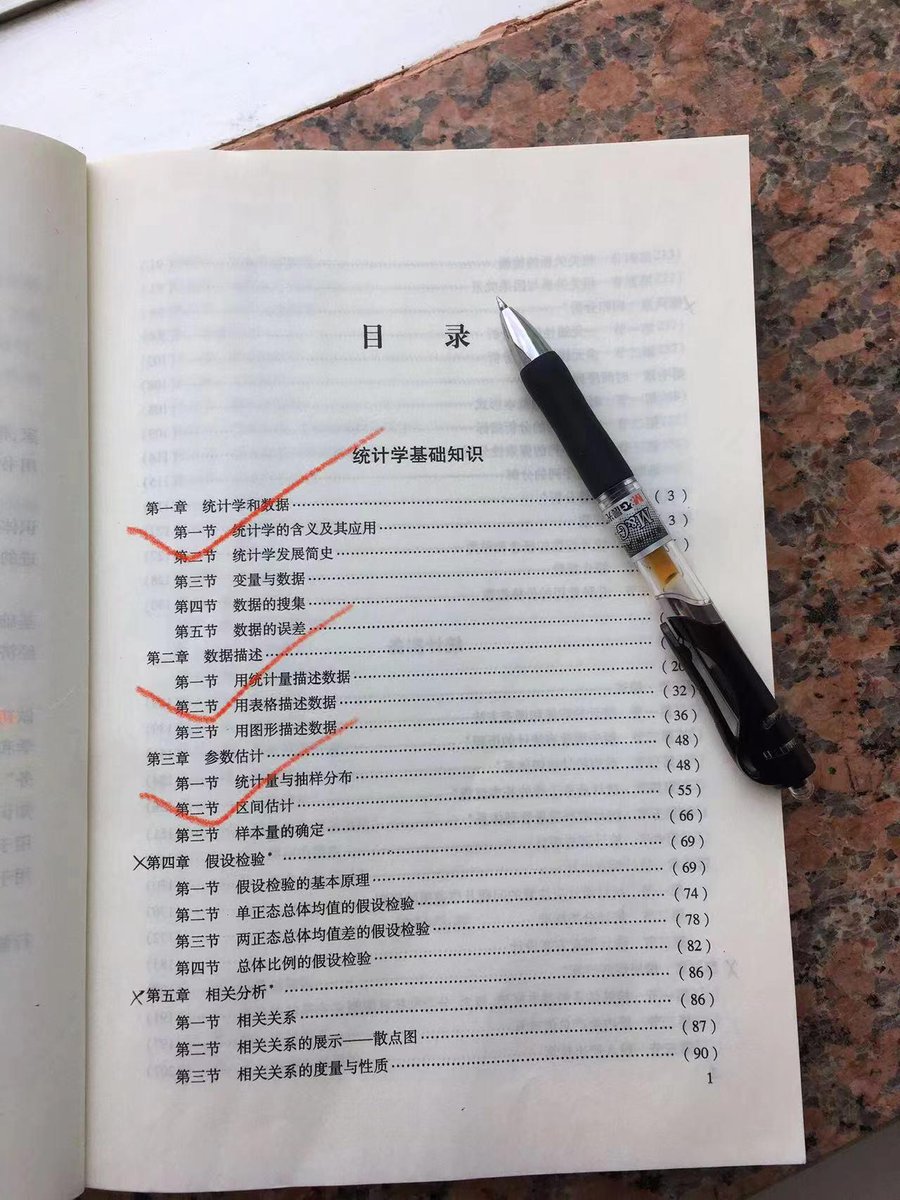 目 录
统计学基础知识
第一章 统计学和数据 (3)
第一节 统计学的含义及其应用 3)
第二节 统计学发展简史 )
第三节 变量与数据
第四节 数据的搜集
第五节 数据的误差
第二章 数据描述
第一节 用统计量描述数据 (20
第二节 用表格描述数据 (32)
第三节 用图形描述数据 (36)
第三章 参数估计 (48)
第一节 统计量与抽样分布 (48)
第二节 区间估计 (55)
第三节 样本量的确定 (66)
第四章 假设检验* (69)
第一节 假设检验的基本原理 (69)
第二节 单正态总体均值的假设检验 (74)
第三节 两正态总体均值差的假设检验 (78)
第四节 总体比例的假设检验 (82)
第五章 相关分析* (86)
第一节 相关关系 (86)
第二节 相关关系的展示——散点图 (87)
第三节 相关关系的度量与性质 (90)
1
M&G